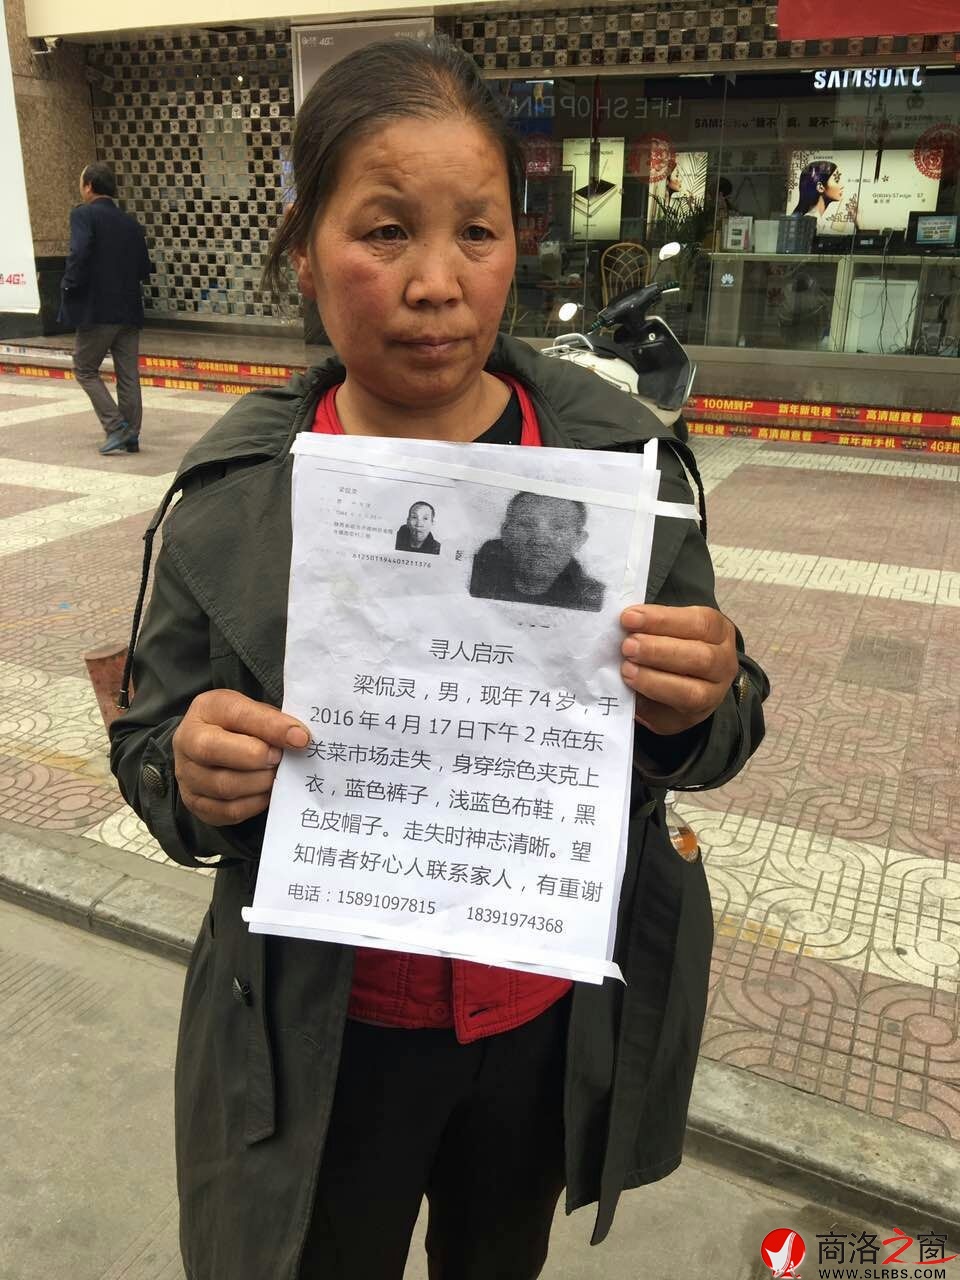 SAMSUNG
LIFE SHOPPING
SAMSUNG
Galaxy S7 edge | S7
HUAWEI
4G
100M到户 新年新电视 高清随意看
新年新手机 4G手机
梁侃灵
612501194401211376
寻人启示
梁侃灵，男，现年 74 岁，于
2016 年 4 月 17 日下午 2 点在东
关菜市场走失，身穿综色夹克上
衣，蓝色裤子，浅蓝色布鞋，黑
色皮帽子。走失时神志清晰。望
知情者好心人联系家人，有重谢
电话：15891097815 18391974368
商洛之窗
WWW.SLRBS.COM